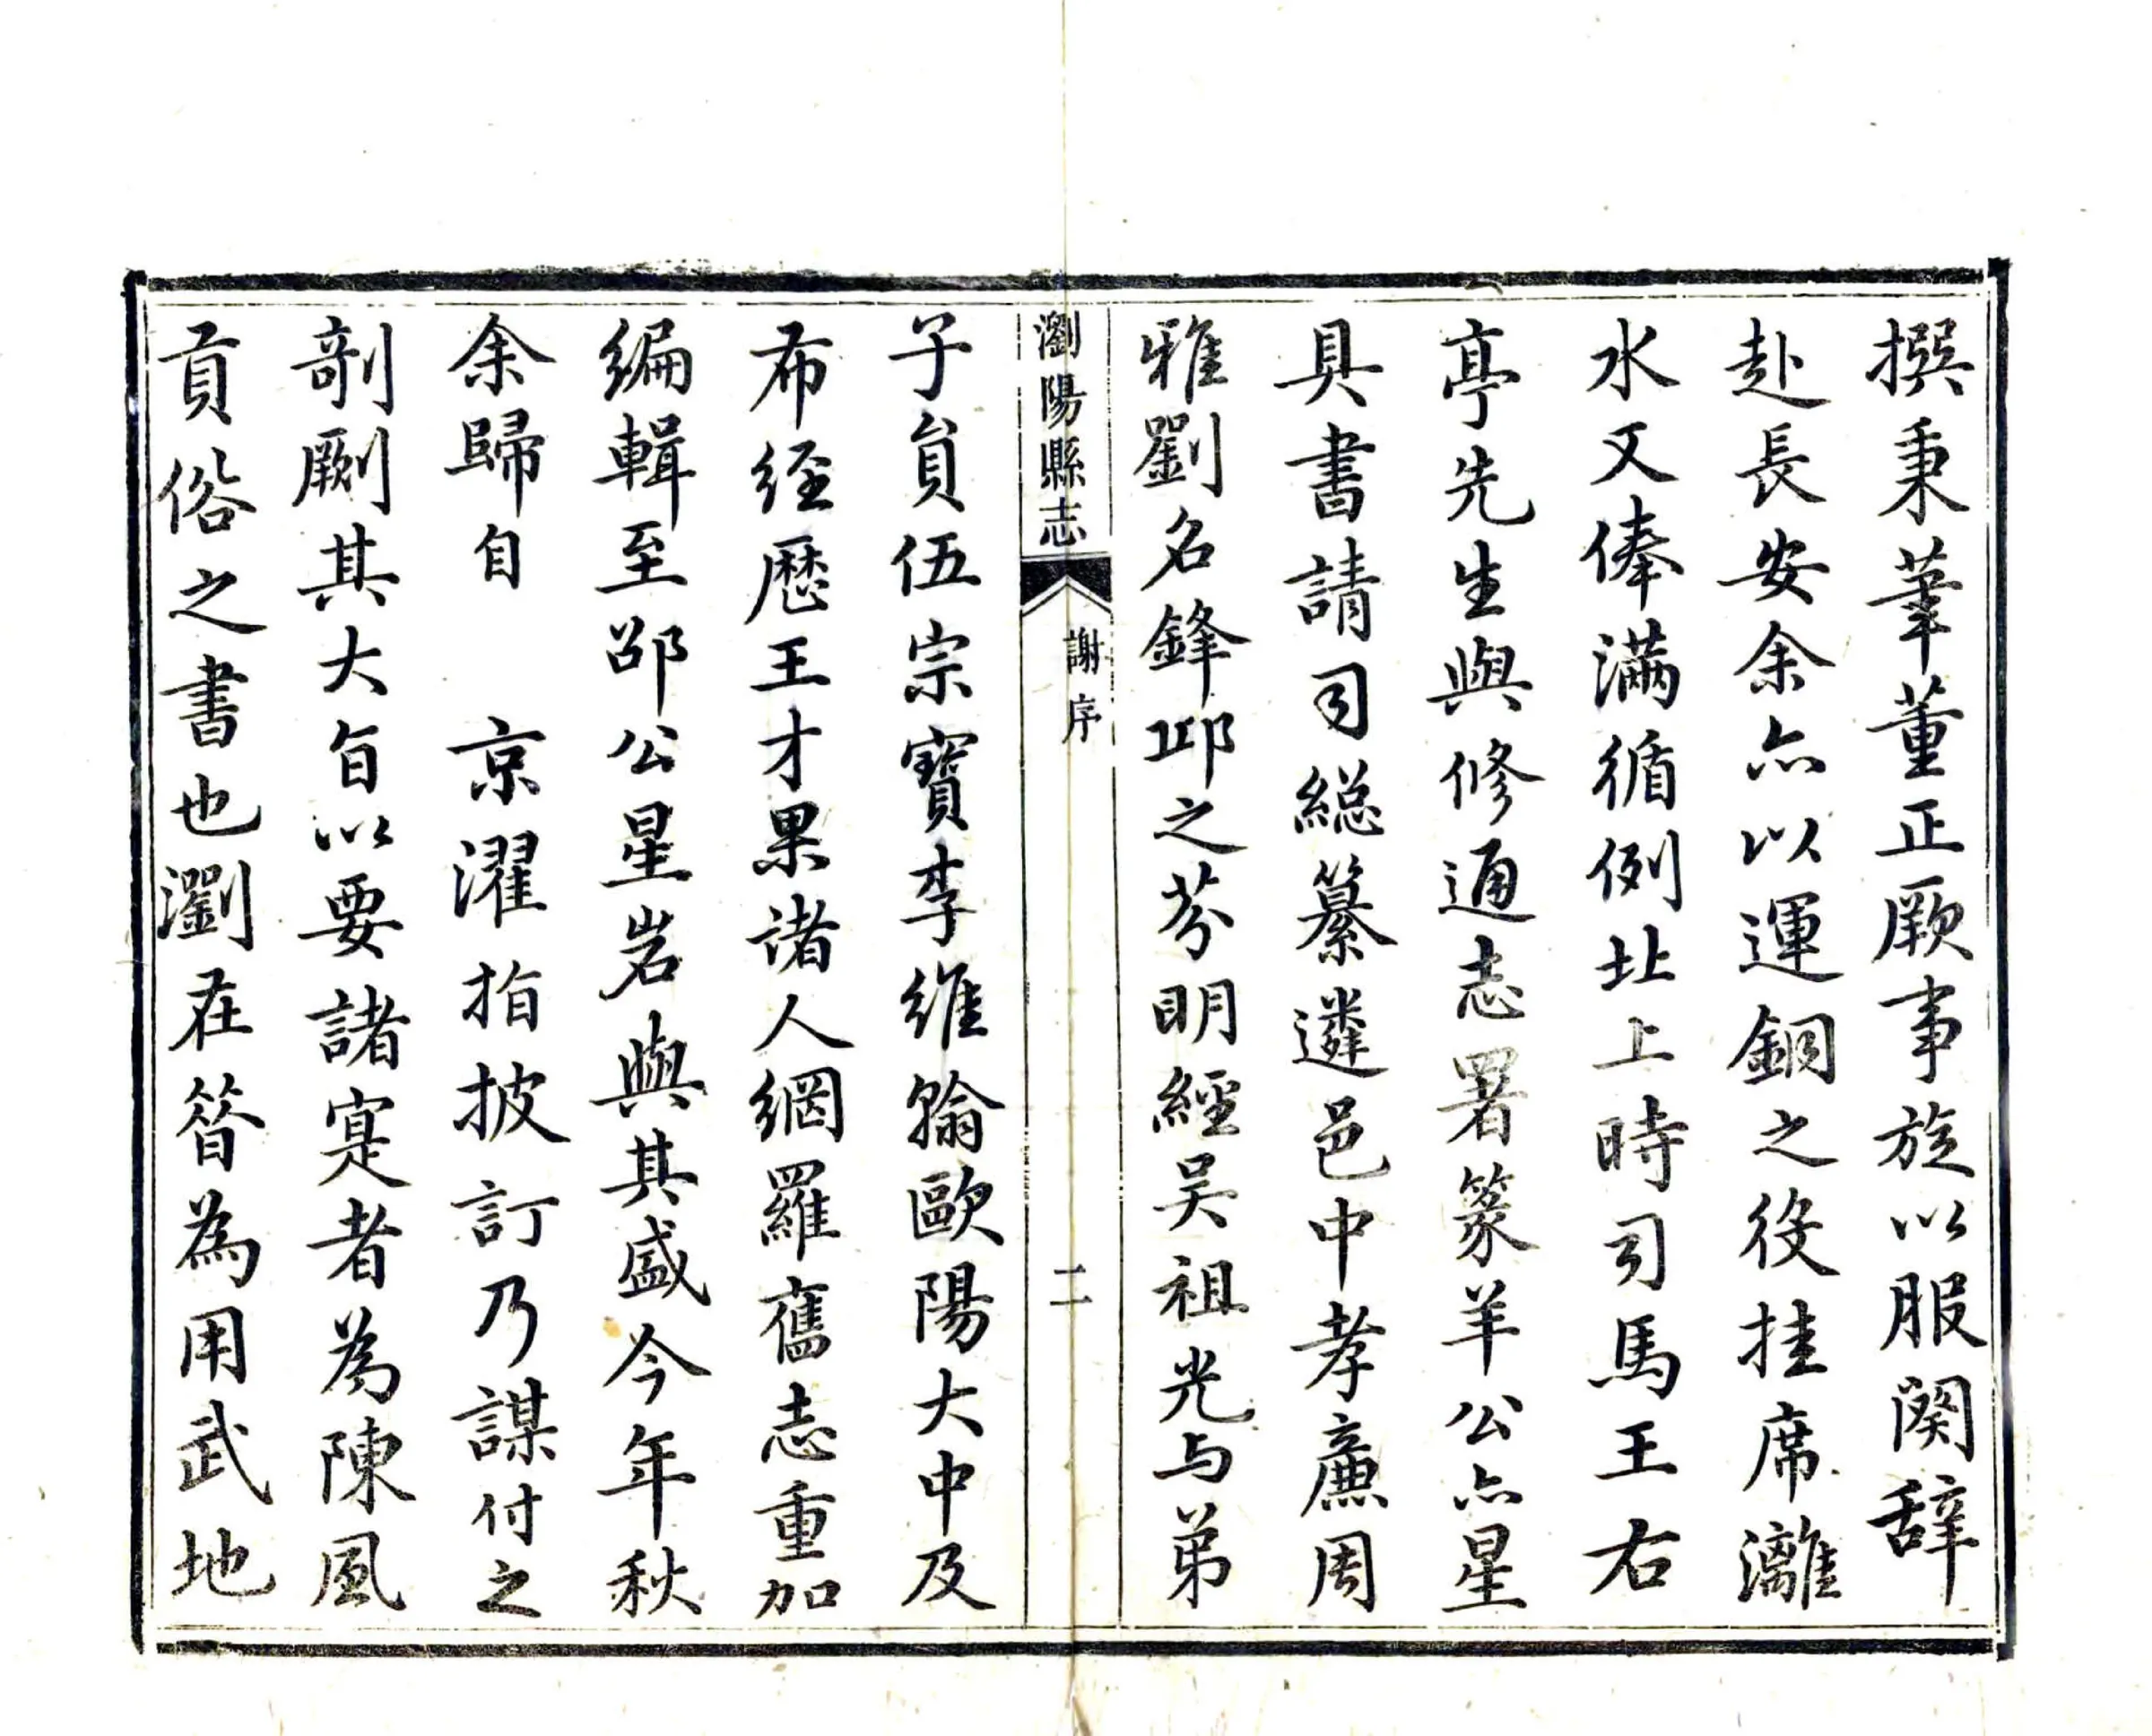 撰秉筆董正厥事旋以服闋辭
赴長安余亦以運銅之役挂席灕
水又俸滿循例北上時司馬王右
亭先生與修通志署篆羊公亦星
具書請司總纂遴邑中孝廉周
雅劉名鋒邱之芬明經吴祖光与弟
瀏陽縣志
謝序
二
子員伍宗寶李維翰歐陽大中及
布經歷王才果諸人網羅舊志重加
編輯至邵公星岩與其盛今年秋
余歸自 京濯指披訂乃謀付之
剞劂其大旨以要諸寔者為陳風
貢俗之書也瀏在昝為用武地